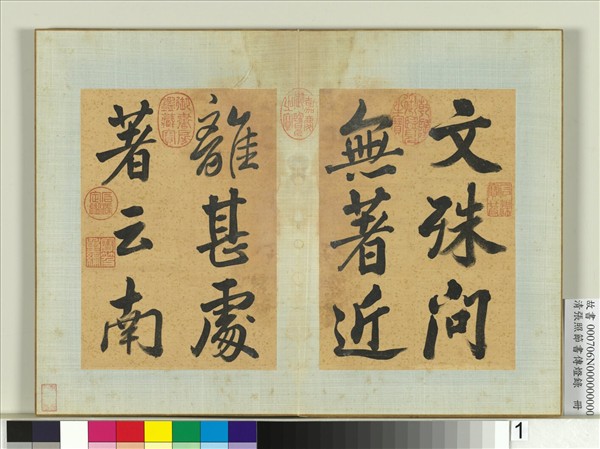 文殊問
無著近
離甚處
著云南
故書 000706N000000000
清張照節書傳燈錄 冊
1